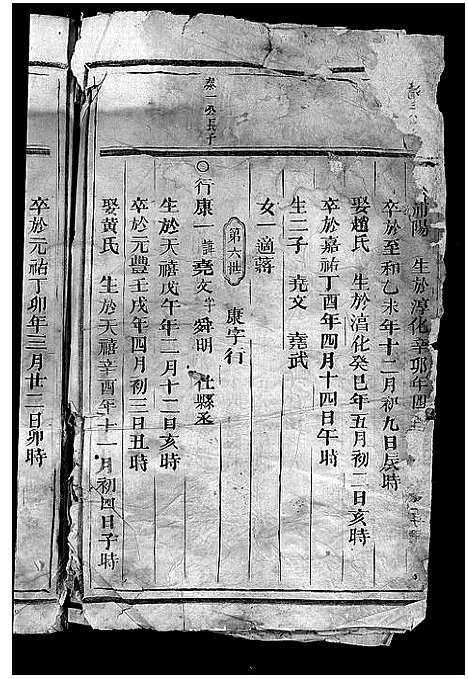 浦陽 生於淳化辛卯年四
卒於至和乙未年十二月初九日辰時
娶趙氏 生於淳化癸巳年五月初二日亥時
卒於嘉祐丁酉年四月十四日午時
生二子 堯文 堯武
女一適蔣
第六世 康字行
秦一公長子
○行康一諱堯文字舜明 杜縣丞
生於天禧戊午年二月十二日亥時
卒於元豐壬戌年四月初三日丑時
娶黃氏 生於天禧辛酉年十一月初四日子時
卒於元祐丁卯年三月廿二日卯時